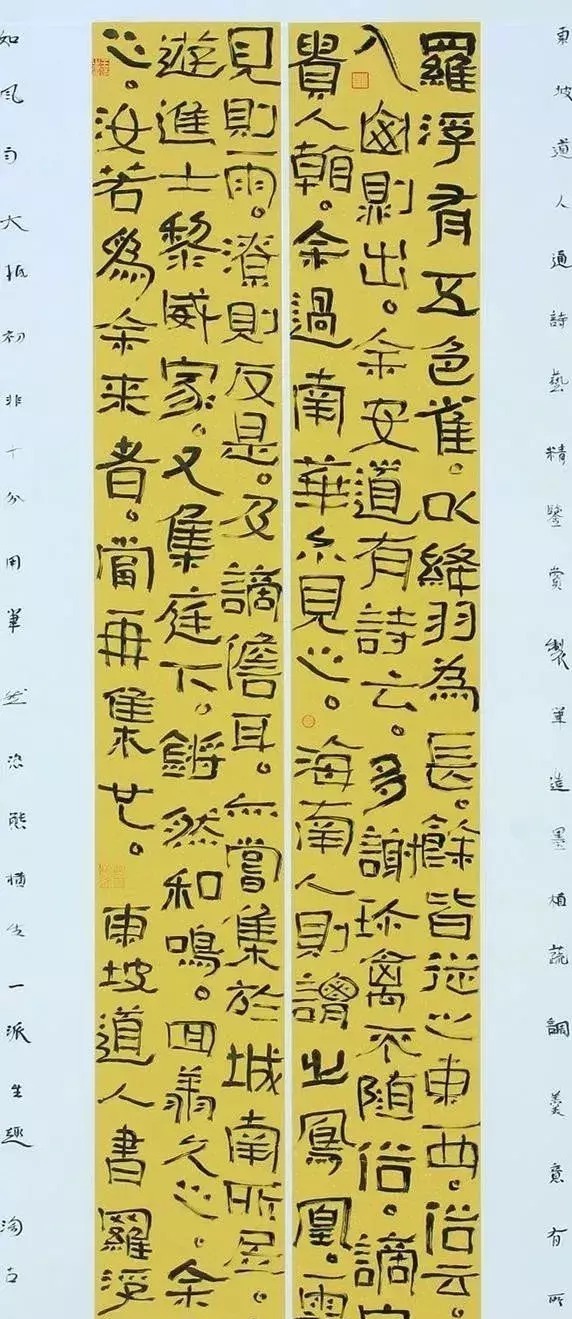 東坡道人通詩藝精鑒賞製筆造墨植蔬調羹意有所
羅浮有五色雀。以絳羽為長。餘皆從之東西。俗云。
入則出。余安道有詩云。多謝珍禽不隨俗。謫官
貴人朝。余過南華亦見之。海南人則謂之鳳凰。雲
見則雨。潦則反是。及謫儋耳。嘗集於城南所居。
遊進士黎威家。又集庭下。鏘然和鳴。回翔久之。余
之。汝若為余来者。當再集也。東坡道人書羅浮
如風大抵初非十分用筆然恣態橫生一派生趣